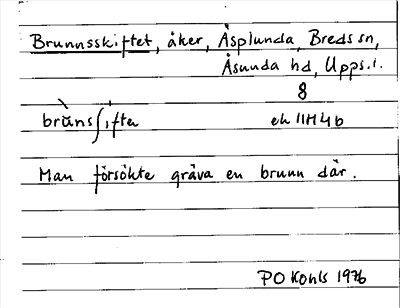 Brunnsskiftet, åker, Åsplunda, Breds sn,
Åsunda hd, Upps.l.
8
brùnsʃifter ek 11H4b
Man försökte gräva en brunn där.
PO Kohls 1976